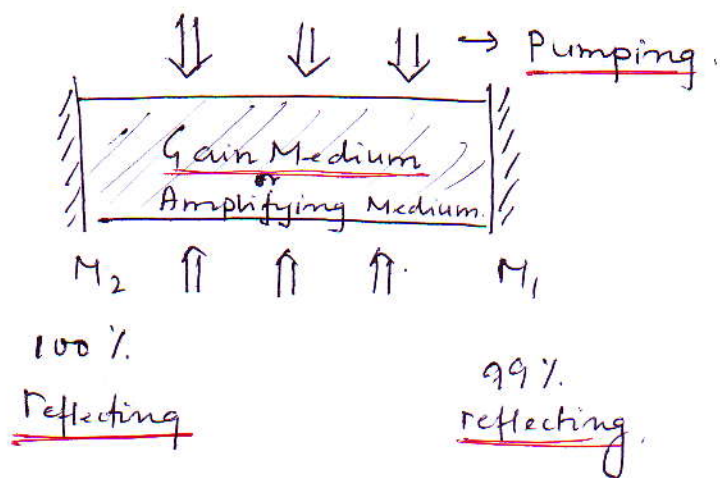 → Pumping.
Gain Medium
or
Amplifying Medium.
M2
M1
100 %.
reflecting
99 %.
reflecting.